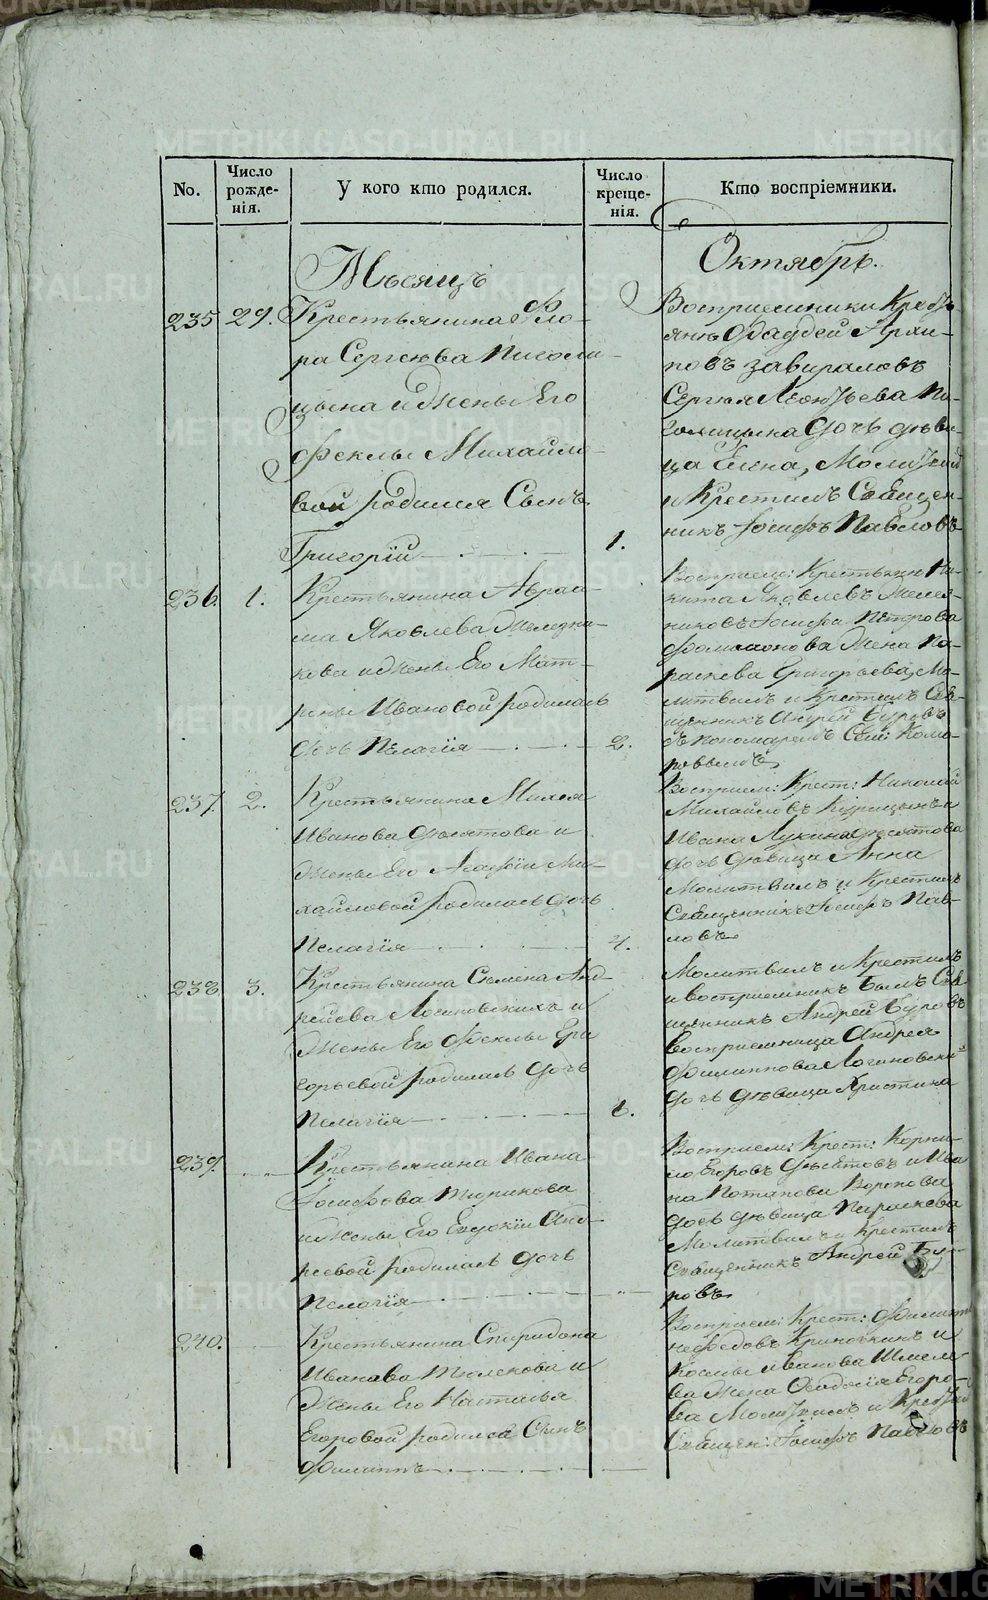 No.
Число рожде-нія.
У кого кто родился.
Число креще-нія.
Кто воспріемники.
Мѣсяцъ
Октябрь.
235
29.
Крестьянина Фло-
ра Сергеюва Пиголи-
цына и жены Его
Феклы Михайло-
вой родился Сынъ
Григорій
1.
Восприемники Кресть-
янъ Фаддей Архи-
повъ Завираловъ
Сергея Леонтьева Пи-
голицына дочь дѣви-
ца Елена, Молитвил
и Крестилъ Священ-
никъ Іосифъ Павловъ
236.
1.
Крестьянина Авраа-
ма Яковлева Мелени-
кова и жены Его Мат-
рены Ивановой родилась
дочь Пелагія
2.
Восприем: Крестьянъ Ни-
кита Яковлевъ Мелен-
никовъ Іосифа Петрова
жена Па-
раскева Григорьева, Мо-
литвилъ и Крестилъ Свя-
щенникъ Андрей Буровъ
съ пономаремъ Кома-
ровымъ
237.
2.
Крестьянина Михея
Иванова Девятова и
жены Его Агафіи Ми-
хайловой родилась дочь
Пелагія
4.
Восприем: Крест: Николай
Михайловъ Курицынъ и
Ивана Лукина Девятова
дочь дѣвица Анна
Молитвилъ и Крестилъ
Священникъ Іосифъ Пав-
ловъ
238
3.
Крестьянина Семена Анд-
реева Логиновскихъ и
жены Его Феклы Гри
горьевой родилась дочь
Пелагія
Молитвилъ и Крестилъ
и восприемникъ былъ Свя
щенникъ Андрей Буровъ
восприемница Андрея
Филиппова Логиновских
дочь дѣвица Христина
239.
Крестьянина Ивана
Іосифова Тюрикова
и жены Его Евдокіи Анд-
реевой родилась дочь
Пелагія
Восприем: Крест: Корни-
ло Егоровъ Девятовъ и Ива
на Потапова Воронова
дочь дѣвица Параскева
Молитвилъ и Крестилъ
Священникъ Андрей Бу-
ровъ
240.
Крестьянина Спиридона
Иванова Тюленова и
жены Его Наталья
Егоровой родился Сынъ
Филиппъ
Восприем: Крест: Филиппъ
Нефедовъ и
Космы Иванова Шмеле-
ва жена Феодосія Егоро-
ва Молитвилъ и Крестил
Священ: Іосифъ Павловъ
METRIKI.GASO-URAL.RU